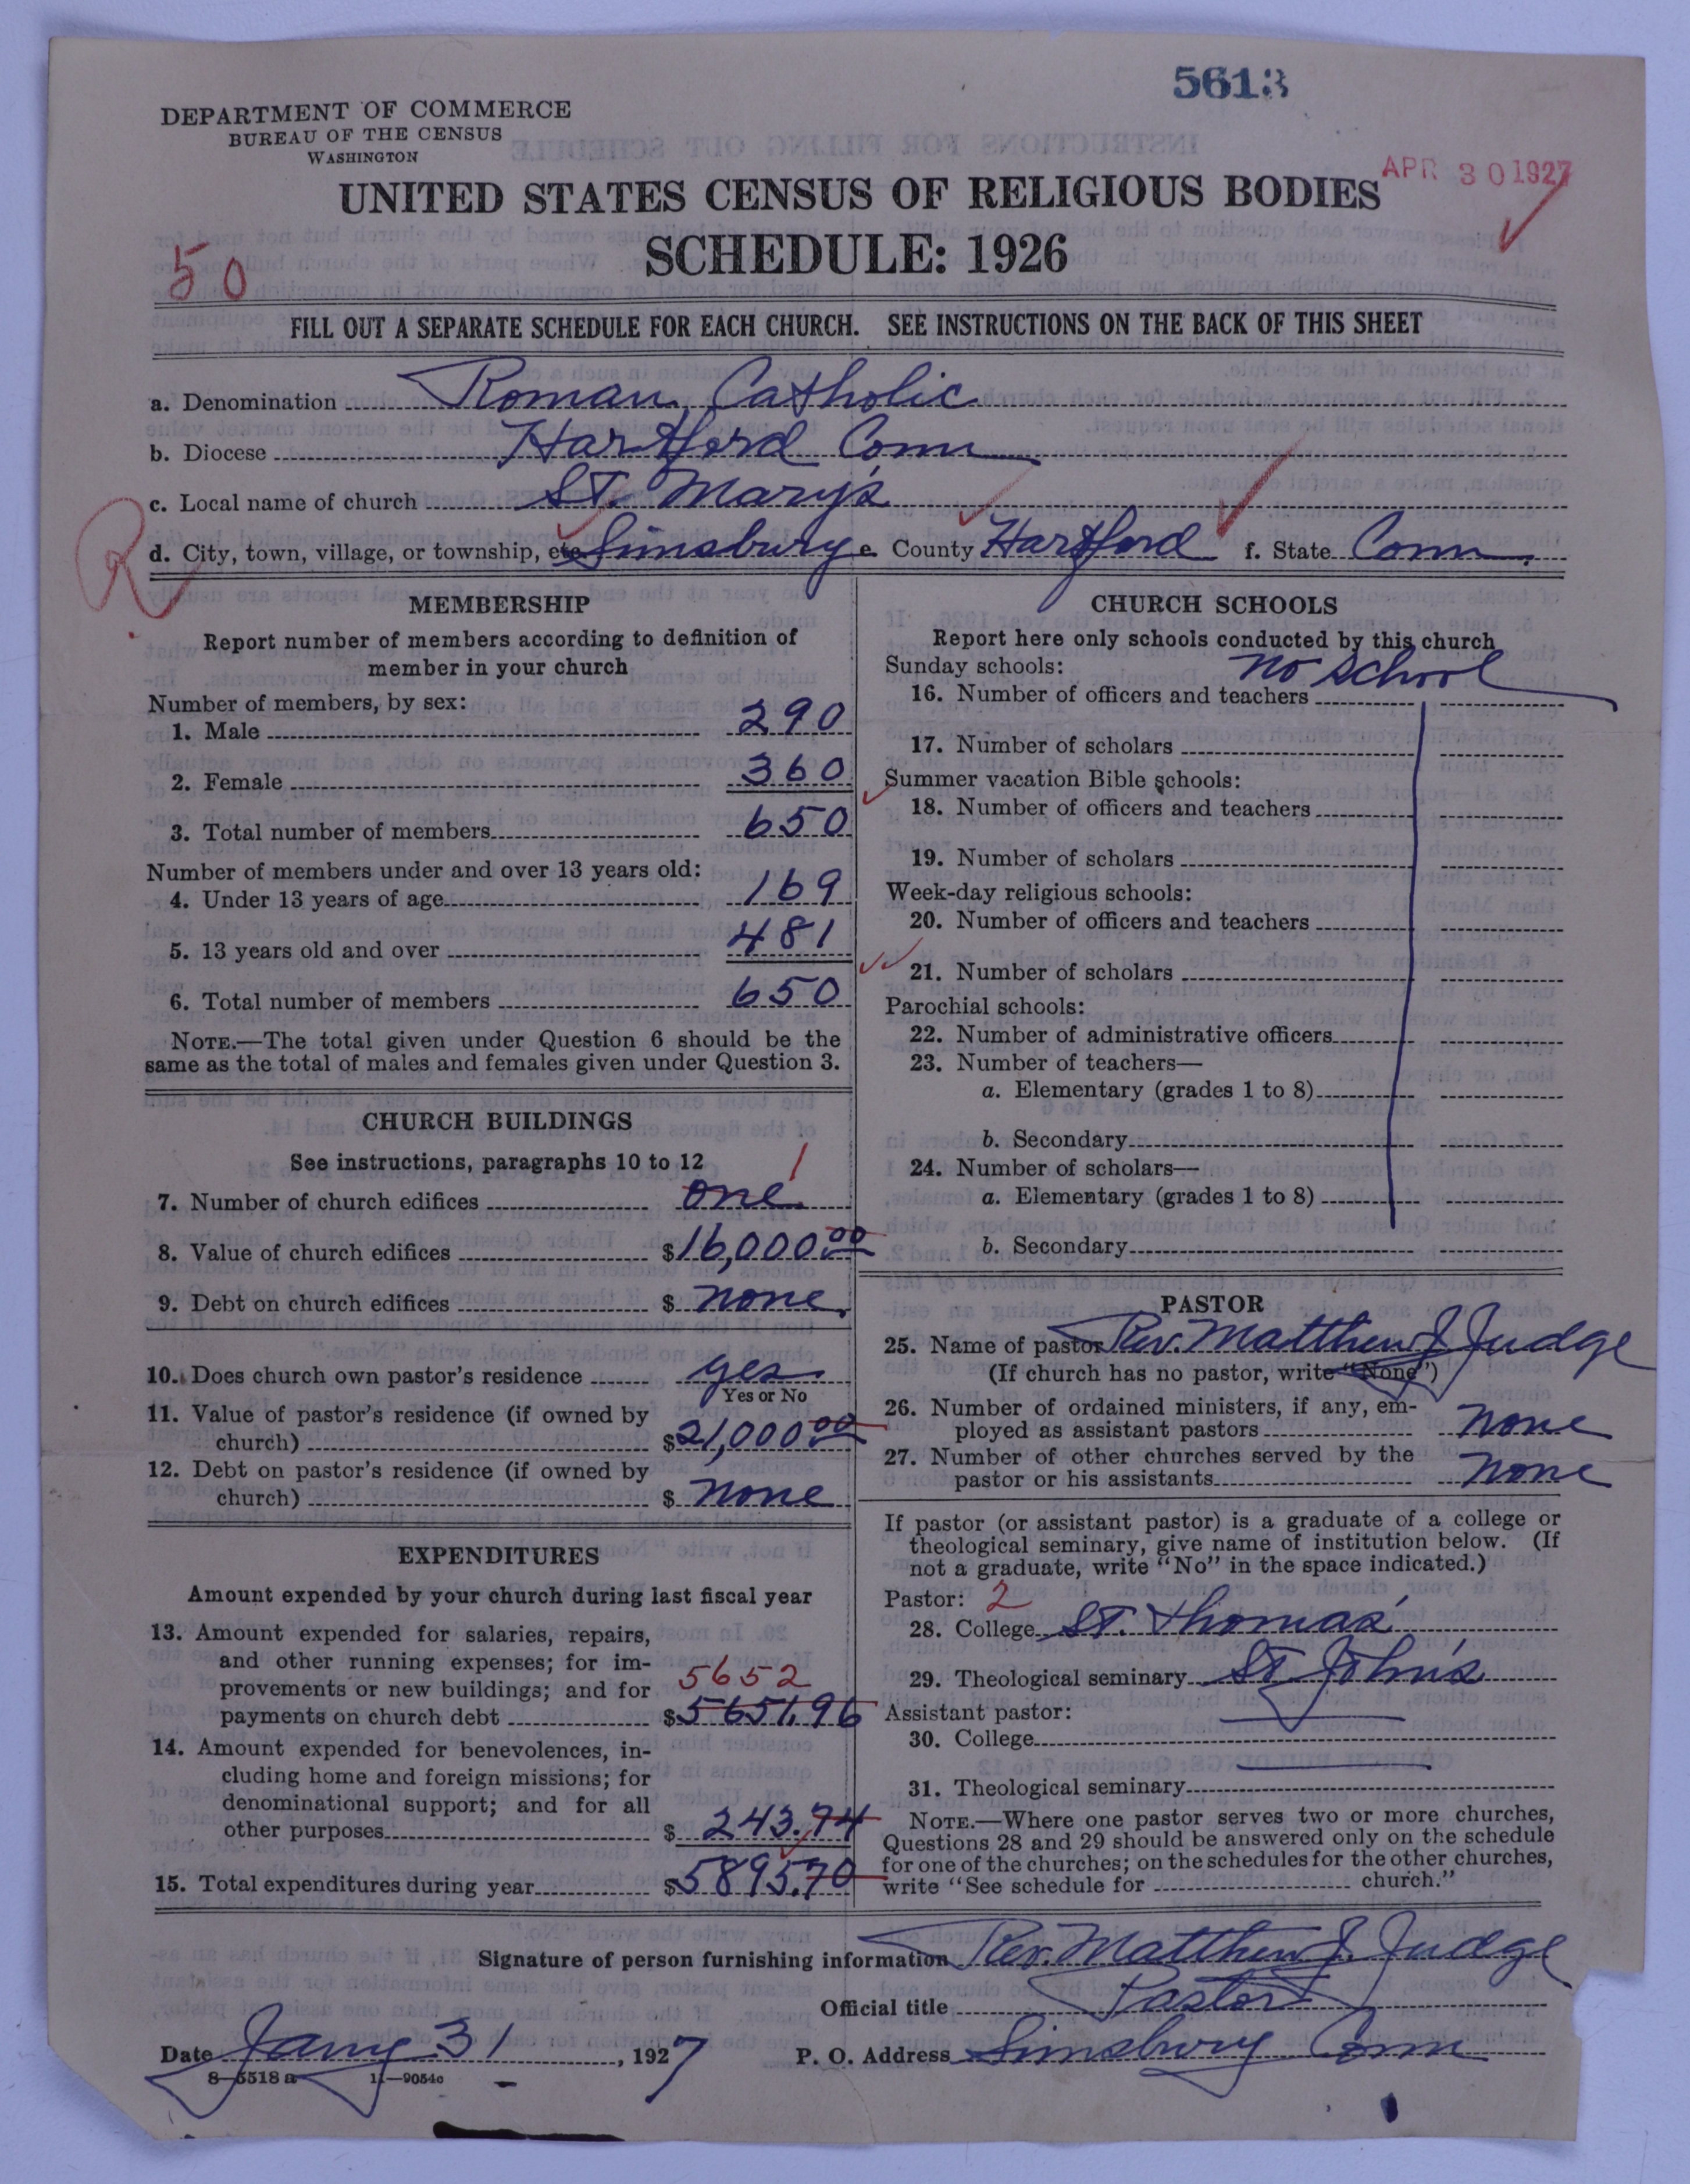 5613
DEPARTMENT OF COMMERCE
BUREAU OF THE CENSUS
WASHINGTON
APR 30 1927
UNITED STATES CENSUS OF RELIGIOUS BODIES
SCHEDULE: 1926
50
FILL OUT A SEPARATE SCHEDULE FOR EACH CHURCH. SEE INSTRUCTIONS ON THE BACK OF THIS SHEET
a. Denomination Roman Catholic
b. Diocese Hartford Conn
c. Local name of church St. Mary's
R
d. City, town, village, or township, etc. Simsbury e. County Hartford f. State Conn.
MEMBERSHIP
Report number of members according to definition of
member in your church
Number of members, by sex:
1. Male 290
2. Female 360
3. Total number of members 650
Number of members under and over 13 years old:
4. Under 13 years of age 169
5. 13 years old and over 481
6. Total number of members 650
NOTE.—The total given under Question 6 should be the
same as the total of males and females given under Question 3.
CHURCH BUILDINGS
See instructions, paragraphs 10 to 12
1
7. Number of church edifices one
8. Value of church edifices $16,000.00
9. Debt on church edifices $ none.
10. Does church own pastor's residence yes
Yes or No
11. Value of pastor's residence (if owned by
church) $21,000.00
12. Debt on pastor's residence (if owned by
church) $ none
EXPENDITURES
Amount expended by your church during last fiscal year
13. Amount expended for salaries, repairs,
and other running expenses; for im-
provements or new buildings; and for 5652
payments on church debt $5651.96
14. Amount expended for benevolences, in-
cluding home and foreign missions; for
denominational support; and for all
other purposes $ 243.74
15. Total expenditures during year $5895.70
CHURCH SCHOOLS
Report here only schools conducted by this church
Sunday schools: no school
16. Number of officers and teachers
17. Number of scholars
Summer vacation Bible schools:
18. Number of officers and teachers
19. Number of scholars
Week-day religious schools:
20. Number of officers and teachers
21. Number of scholars
Parochial schools:
22. Number of administrative officers
23. Number of teachers—
a. Elementary (grades 1 to 8)
b. Secondary
24. Number of scholars—
a. Elementary (grades 1 to 8)
b. Secondary
PASTOR
25. Name of pastor Rev. Matthew J Judge
(If church has no pastor, write "None")
26. Number of ordained ministers, if any, em-
ployed as assistant pastors none
27. Number of other churches served by the
pastor or his assistants none
If pastor (or assistant pastor) is a graduate of a college or
theological seminary, give name of institution below. (If
not a graduate, write "No" in the space indicated.)
Pastor: 2
28. College St. Thomas'
29. Theological seminary St John's
Assistant pastor:
30. College
31. Theological seminary
NOTE.—Where one pastor serves two or more churches,
Questions 28 and 29 should be answered only on the schedule
for one of the churches; on the schedules for the other churches,
write "See schedule for church."
Signature of person furnishing information Rev. Matthew J. Judge
Official title Pastor
Date Jany 31, 1927 P. O. Address Simsbury Conn
8—5518 a 11—9054c